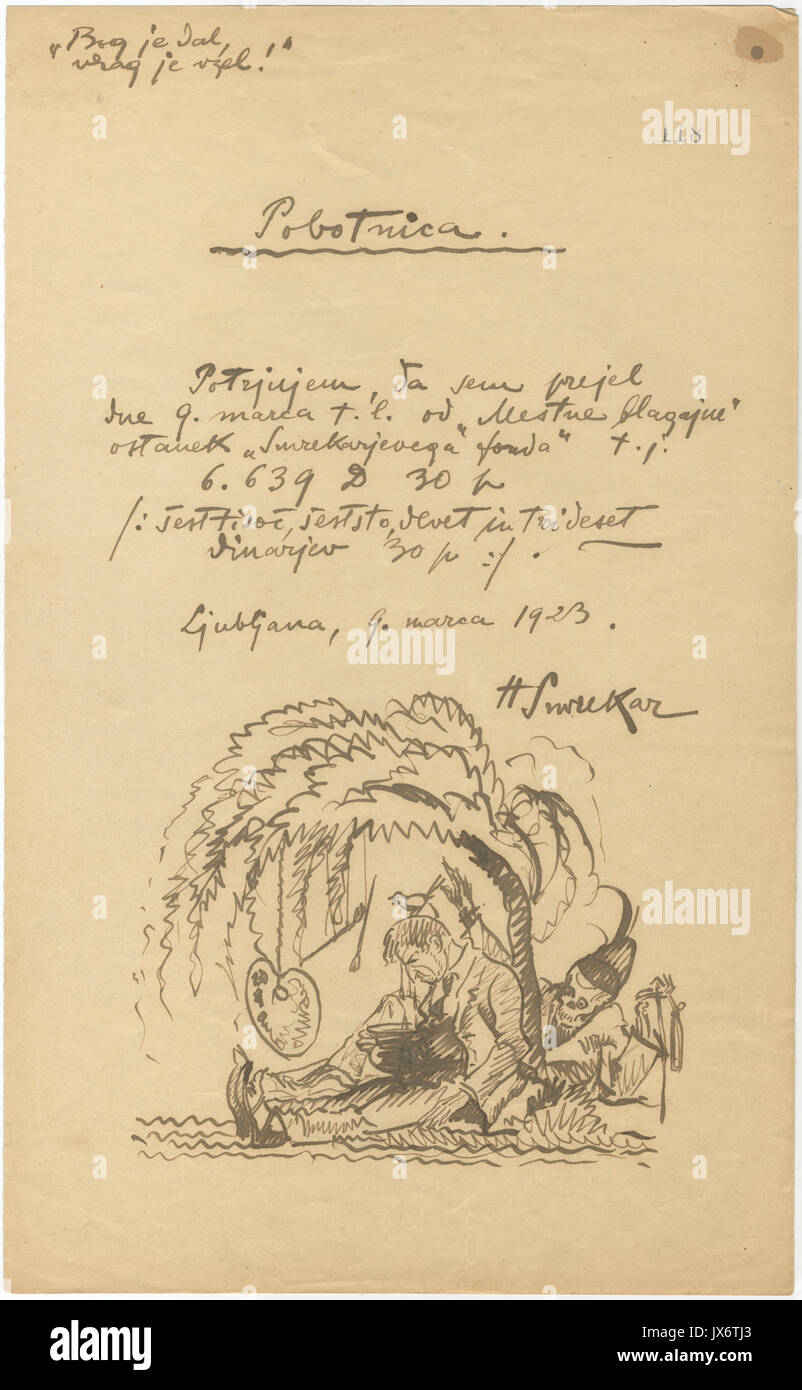 "Bog je dal,
vrag je vzel!"
118
Pobotnica.
Potrjujem, da sem prejel
dne 9. marca t. l. od „Mestne blagajne"
ostanek „Smrekarjevega fonda" t. j.
6.639 D 30 p
/: šesttisoč, šeststo, devet in trideset
dinarjev 30 p :/.
Ljubljana, 9. marca 1923.
HSmrekar
a
a
a
a
a
a
a
a
a
alamy
Image ID: JX6TJ3
www.alamy.com